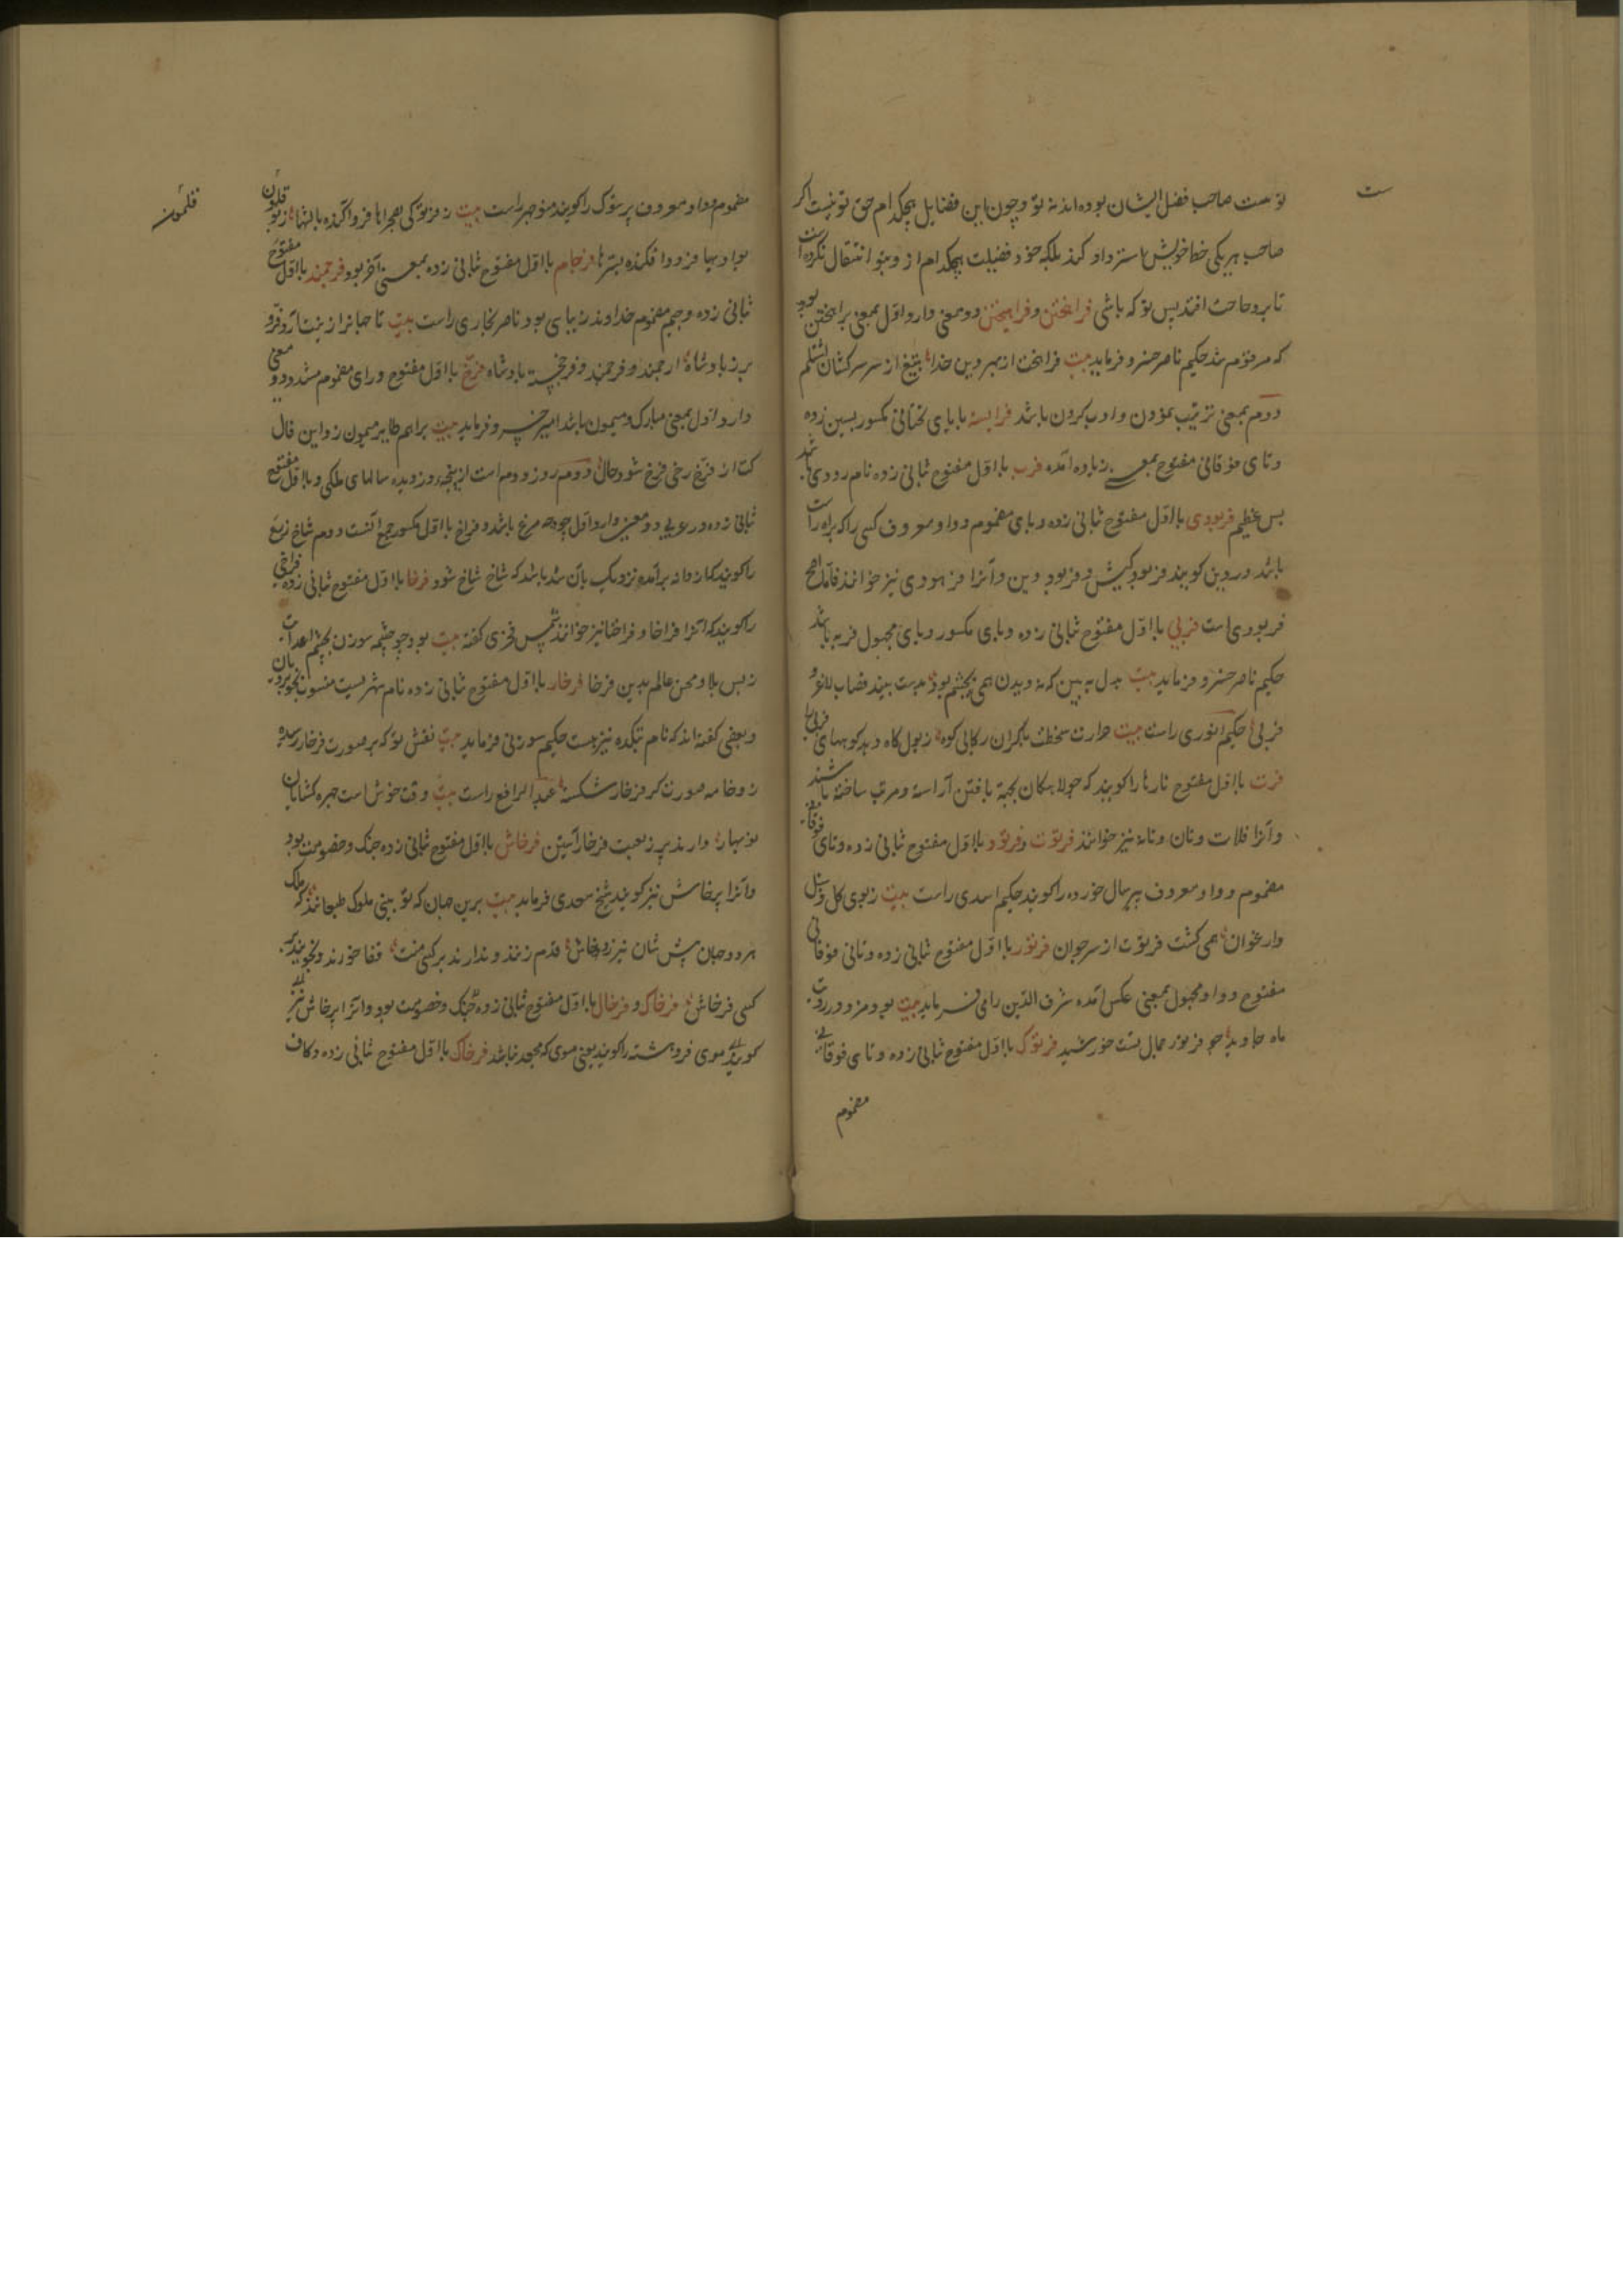 ست
تو هست صاحب فضل ایشان بوده اند نه تو و چون این فضایل هیچکدام حق تو نیست اگر
صاحب هر یکی خط خویش استرداد کند بلکه خود فضیلت هیچکدام از و بتو انتقال نکرده است
تا برو حاجت افتد پس تو که باشی فراختن و فراهیختن دو معنی دارد اول بمعنی برافراختن بود
که مرقوم شد حکیم ناصر خسرو فرماید بیت فراخت از بهر دین خدا تیغ از سر سرکشان
دوم بمعنی ترتیب نمودن و ادب کردن باشد فرابسته بابای تحتانی مکسور بسین زده
و تای فوقانی مفتوح بمعنی زیاده آمده فرب با اول مفتوح ثانی زده نام رودی باشد
بس عظیم فربودی با اول مفتوح ثانی زده و بای مضموم و واو معروف کسی را که براه راست
باشد در دین کویند فربود کیش و فربود دین و آنرا فرهودی نیز خوانند
فربودی است فربی با اول مفتوح ثانی زده و بای مکسور و یای مجهول فربه باشد
حکیم ناصر خسرو فرماید بیت بدل ببین که نه دیدن همی بچشم بود بدست بیند قصاب لاغر و
فربی حکیم انوری راست بیت حرارت سخطت باکران رکابی کوه ز بول کاه دهد کوههای فربی را
فرت با اول مفتوح تارها را کویند که جولاهکان بجهة بافتن آراسته و مرتب ساخته باشند
و آنرا فلات و تان و تانه نیز خوانند فرتوت و فرتود با اول مفتوح ثانی زده و تای فوقانی
مضموم و واو معروف پیر سال خورده را کویند حکیم اسدی راست بیت ز بوی کل و سنبل
و ارغوان همی کشت فرتوت از سر جوان فرتور با اول مفتوح ثانی زده و تای فوقانی
مفتوح و واو مجهول بمعنی عکس آمده شرف الدین رامی فرماید بیت بود مزدور رویت
ماه جاوید چو فرتور جمال تست خورشید فرتوک با اول مفتوح ثانی زده و تای فوقانی
مضموم
قلمون
مضموم و واو معروف پرستوک را کویند منوچهر راست بیت
بوادیها فرود افکنده بسترها فرجام با اول مفتوح ثانی زده بمعنی آخر بود فرجمند با اول مفتوح
ثانی زده و جیم مضموم خداوند زیبای بود ناصر بخاری راست بیت تا جهانرا از
بر زبادشاه ارجمند و فرجمند و فرخجسته بادشاه فرخ با اول مفتوح و رای مضموم مشدد دو معنی
دارد اول بمعنی مبارک و میمون باشد امیر خسرو فرماید بیت برآهم طایر میمون زد این فال
کت از فرخ رخی فرخ شود حال دوم روز دوم است از پنجه دزدیده سالهای ملکی و با اول مفتوح
ثانی زده در عربی دو معنی دارد اول چوجه مرغ باشد و فراخ با اول مکسور جمع آنست دوم شاخ زرع
را کویند که از دانه برآمده نزدیک بآن شد باشد که شاخ شاخ شود فرخا با اول مفتوح ثانی زده فراخی
را کویند که آنرا فراخا و فراخنا نیز خوانند شمس فخری کفته بیت بود چو چشمه سوزن بچشم اعدایت
ز بس بلا و محن عالم بدین فرخا فرخار با اول مفتوح ثانی زده نام شهریست منسوب بخوبرویان
و بعضی کفته اند که نام بتکده نیز هست حکیم سوزنی فرماید بیت نقش تو که بر صورت فرخار رسد
زد خامه صورت کر فرخار شکسته عبد الرافع راست بیت وقت خوش است
نوبهار دارند پر ز لعبت فرخار آستین فرخاش با اول مفتوح ثانی زده جنک و خصومت بود
و آنرا پرخاش نیز کویند شیخ سعدی فرماید بیت برین جهان که تو بینی ملوک طبعانند که ملک
هر دو جهان پیش شان نیرزد خاش قدم زنند و ندارند بر کسی منت قفا خورند و نجویند
کسی فرخاش فرخاک و فرخال با اول مفتوح ثانی زده جنک و خصومت بود و انرا پرخاش نیز
کویند موی فروهشته را کویند یعنی موی که مجعد نباشد فرخاک با اول مفتوح ثانی زده و کاف